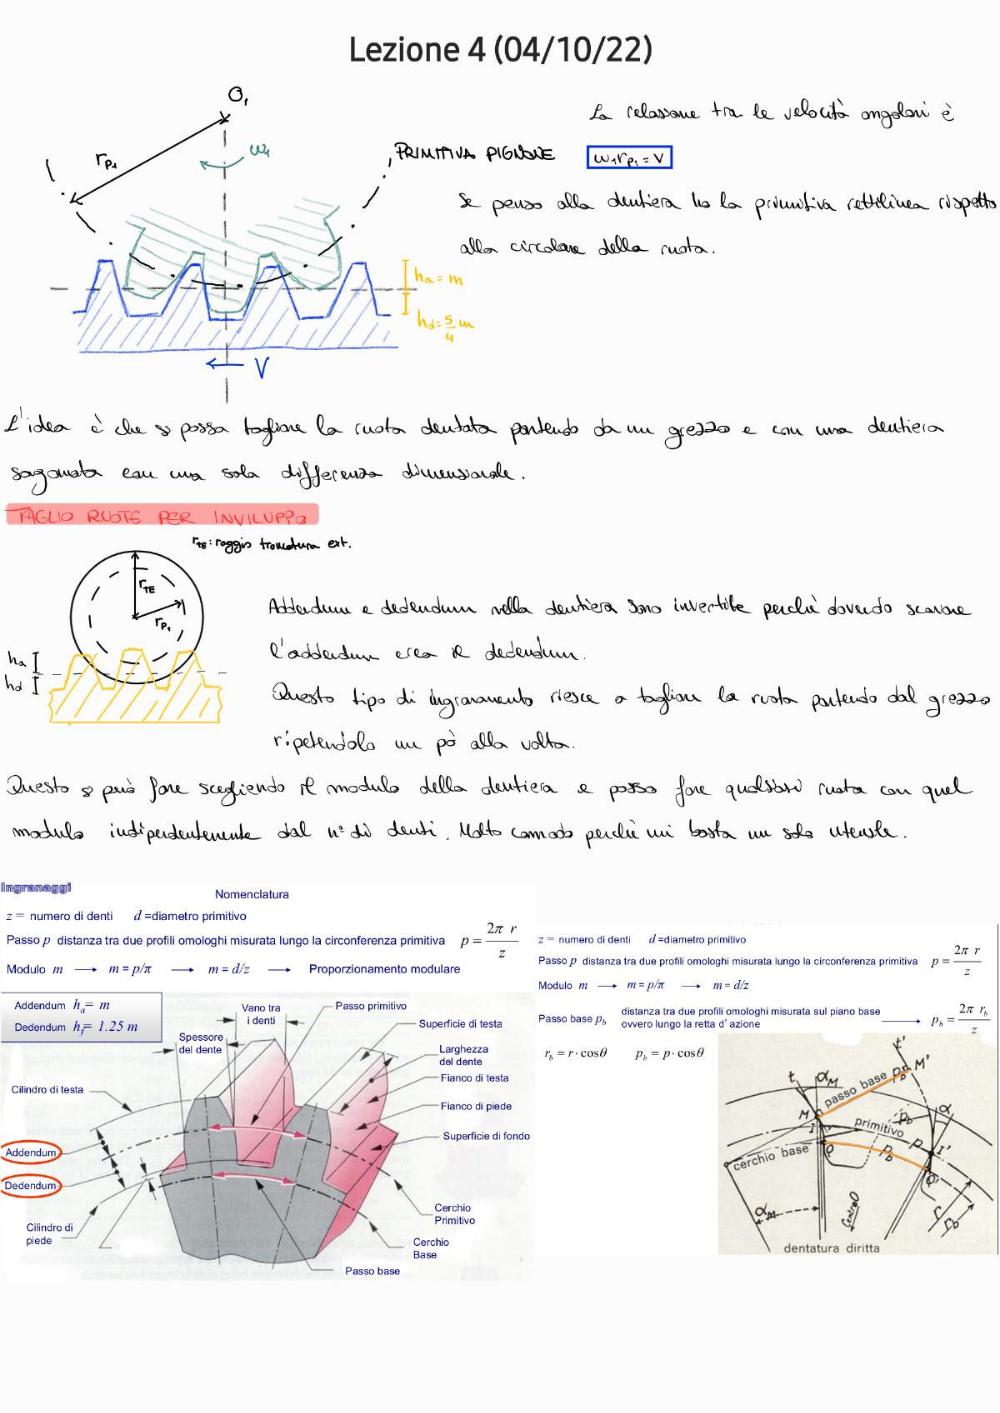 Lezione 4 (04/10/22)
O₁
rp₁
ω₁
PRIMITIVA PIGNONE
La relazione tra le velocità angolari è
ω₁rp₁ = V
Se penso alla dentiera ho la primitiva rettilinea rispetto
alla circolare della ruota.
ha = m
hd = 5/4 m
V
L'idea è che si possa tagliare la ruota dentata partendo da un grezzo e con una dentiera
sagomata con una sola differenza dimensionale.
TAGLIO RUOTE PER INVILUPPO
rTE: raggio troncatura ext.
rTE
rp₁
ha
hd
Addendum e dedendum nella dentiera sono invertite perché dovendo scavare
l'addendum crea il dedendum.
Questo tipo di ingranamento riesce a tagliare la ruota partendo dal grezzo
ripetendolo un pò alla volta.
Questo si può fare scegliendo il modulo della dentiera e posso fare qualsiasi ruota con quel
modulo indipendentemente dal n° di denti. Molto comodo perché mi basta un solo utensile.
Ingranaggi
Nomenclatura
z = numero di denti d =diametro primitivo
Passo p distanza tra due profili omologhi misurata lungo la circonferenza primitiva p = 2π r / z
Modulo m → m = p/π → m = d/z → Proporzionamento modulare
Addendum hₐ= m
Dedendum h_f= 1.25 m
Vano tra
i denti
Passo primitivo
Spessore
del dente
Superficie di testa
Larghezza
del dente
Cilindro di testa
Fianco di testa
Fianco di piede
Addendum
Superficie di fondo
Dedendum
Cilindro di
piede
Cerchio
Primitivo
Cerchio
Base
Passo base
z = numero di denti d =diametro primitivo
Passo p distanza tra due profili omologhi misurata lungo la circonferenza primitiva p = 2π r / z
Modulo m → m = p/π → m = d/z
Passo base p_b distanza tra due profili omologhi misurata sul piano base
ovvero lungo la retta d' azione → p_b = 2π r_b / z
r_b = r · cosθ p_b = p · cosθ
t'
t
α_M
passo base p_b
M'
M
I
primitivo
p_b
α
p
I'
cerchio base
Q
p_b
Q'
α_M
centro O
r
r_b
dentatura diritta